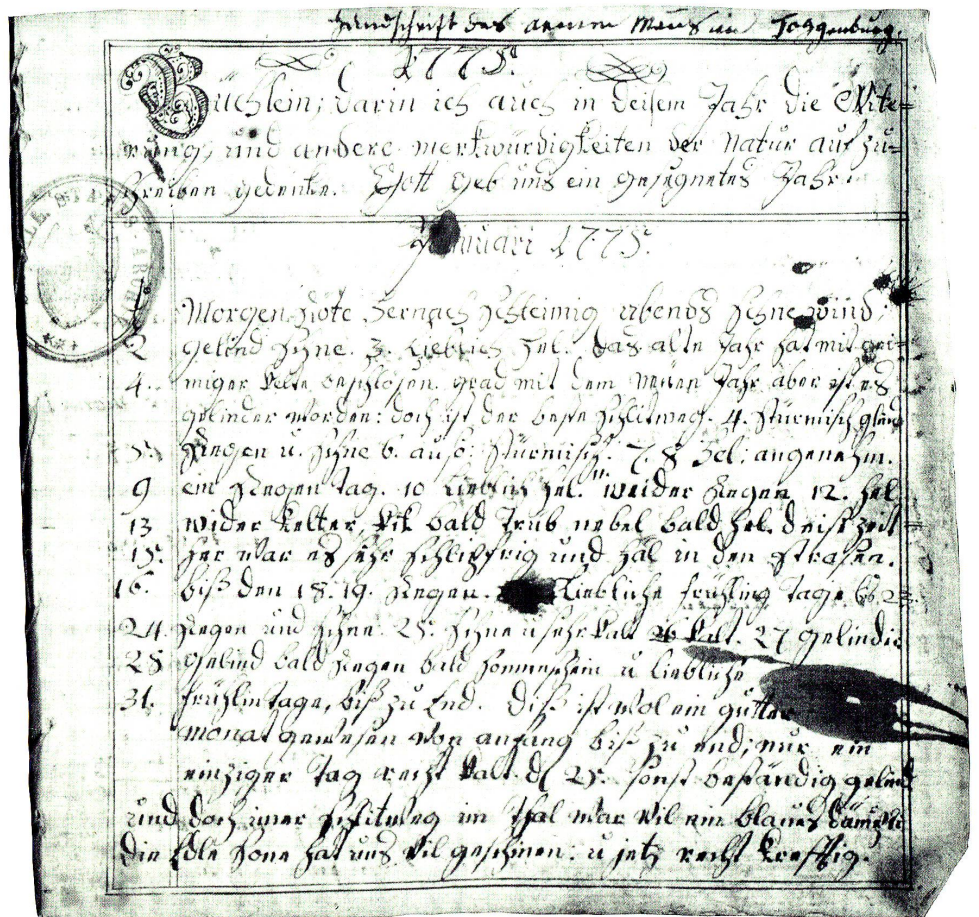 Handschrift des armen Mans im Toggenburg.
1775.
Büchlein; darin ich auch in deisem Jahr die Wite=
rung, und andere merkwürdigkeiten der Natur auf zu=
schreiben gedenke. Gott geb uns ein gesegnetes Jahr
Januari 1775.
1. Morgenröte hernach schleimig abends schne wind,
2 gelind schne. 3. Lieblich hel. das alte Jahr hat mit gri=
4. miger kelte beschlosen. grad mit dem Neuen Jahr aber ist es
gelinder worden: doch ist der beste schlitweg. 4. stürmisch glind
5. Regen u. schne 6. auso: stürmisch. 7. 8 hel; angenehm.
9 ein Regen tag. 10 Lieblich hel. 11. weider Regen 12. hel
13 wider kelter, bald trub nebel bald hel. deise zeit
15. her war es sehr schlipfrig und häl in den strasen.
16. biß den 18. 19. Regen. Liebliche früling tage biß 23
24. Regen und schne. 25. schne u sehr kalt 26 kalt. 27 gelinder
28 gelind bald Regen bald sonnenschein u liebliche
31. frühlintage, biß zu End. diß ist wol ein guter
monat gewesen von anfang biß zu end; nur ein
einziger tag recht kalt d 25. sonst beständig gelind
und doch imer schlitweg im thal war vil ein blaues
die Edle sone hat uns vil geschinen. u jetz recht krefftig.